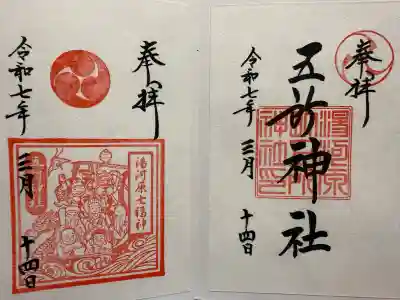 奉拝
五所神社
令和七年 三月 十四日
湯河原
神社
奉拝
令和七年 三月 十四日
湯河原七福神
五所神社